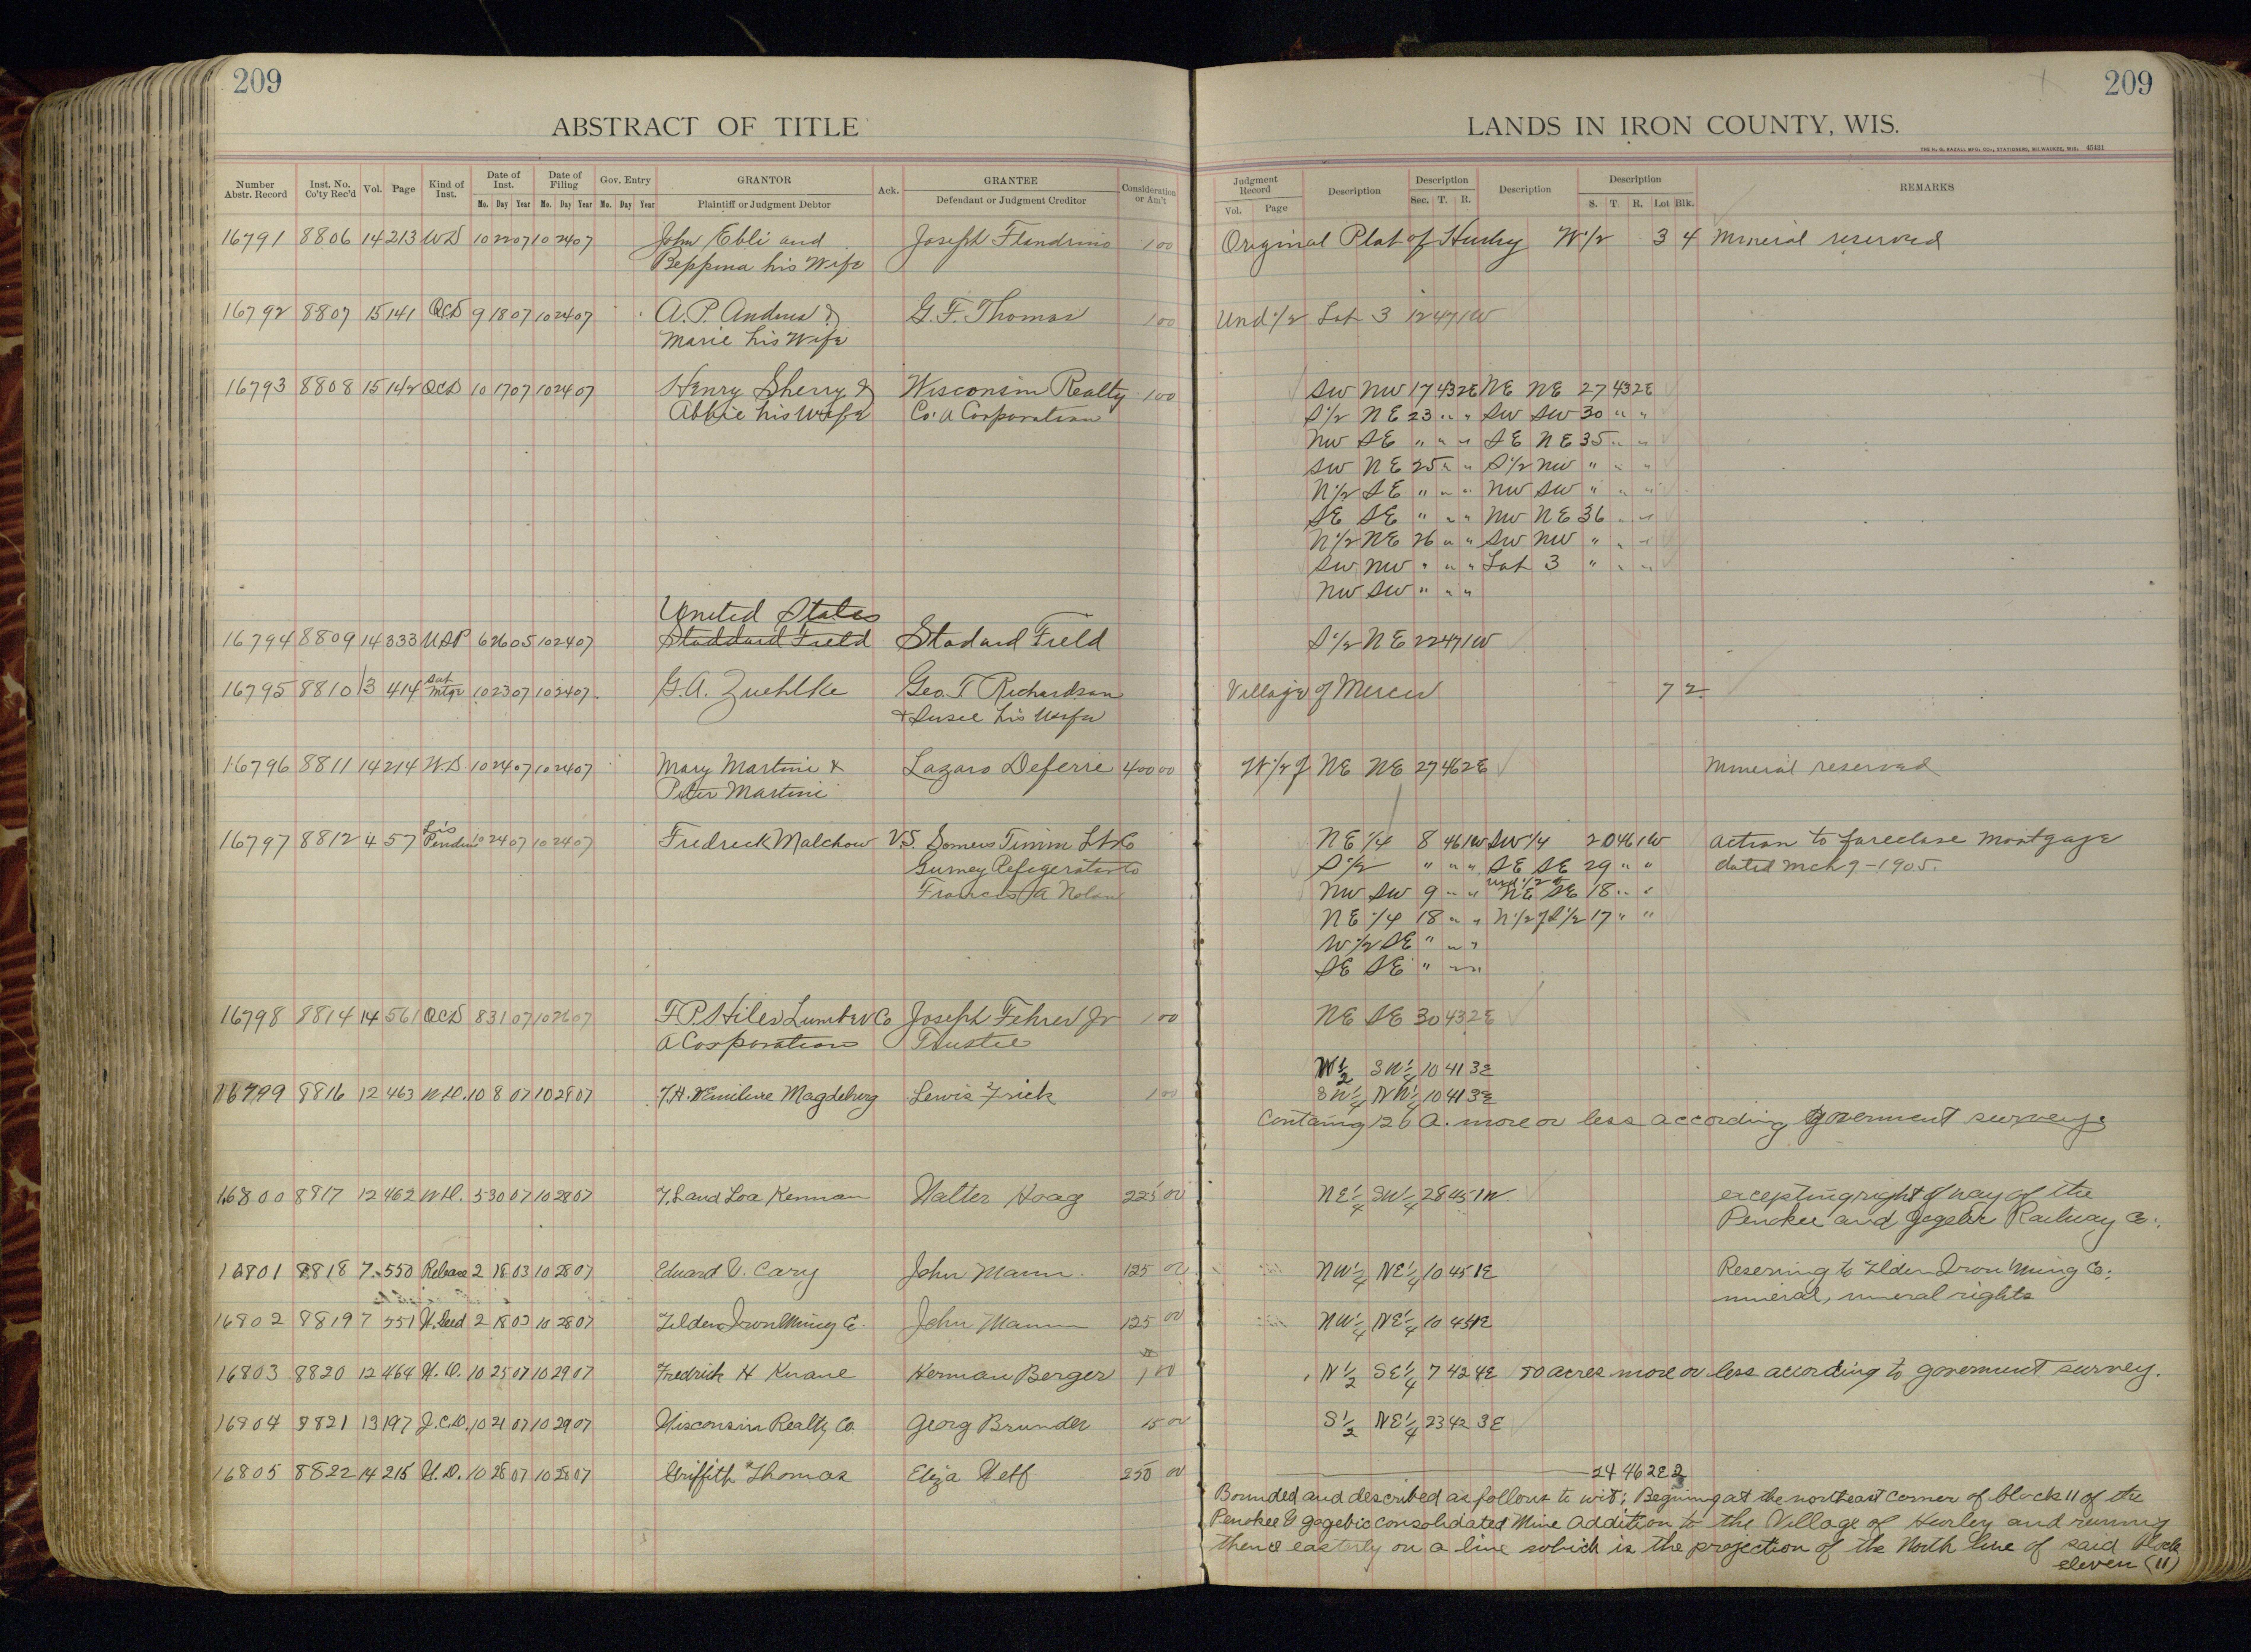 209
209
ABSTRACT OF TITLE
LANDS IN IRON COUNTY, WIS.
THE H. G. RAZALL MFG. CO., STATIONERS, MILWAUKEE, WIS. 45431
Number Abstr. Record Inst. No. Co'ty Rec'd Vol. Page Kind of Inst. Date of Inst. Date of Filing Gov. Entry GRANTOR Ack. GRANTEE Consideration or Am't
Mo. Day Year Mo. Day Year Mo. Day Year Plaintiff or Judgment Debtor Defendant or Judgment Creditor
Judgment Record Description Description Description Description REMARKS
Vol. Page Sec. T. R. S. T. R. Lot Blk.
16791 8806 14 213 WD 10 22 07 10 24 07 John Ebli and Joseph Flandrino 1 00 Original Plat of Hurley W 1/2 3 4 Mineral reserved
Beppina his Wife
16792 8807 15 141 QCD 9 18 07 10 24 07 A. P. Andrus & G. F. Thomas 1 00 Und 1/2 Lot 3 12 47 1W
Marie his Wife
16793 8808 15 142 QCD 10 17 07 10 24 07 Henry Sherry & Wisconsin Realty 1 00 SW NW 17 43 2E NE NE 27 43 2E
Abbie his Wife Co. a Corporation S 1/2 NE 23 " " SW SW 30 " "
NW SE " " " SE NE 35 " "
SW NE 25 " " S 1/2 NW " " "
N 1/2 SE " " " NW SW " " "
SE SE " " " NW NE 36 " "
N 1/2 NE 26 " " SW NW " " "
SW NW " " " Lot 3 " " "
NW SW " " "
United States
16794 8809 14 333 USP 6 26 05 10 24 07 Stoddard Field Stodard Field S 1/2 NE 22 47 1W
16795 8810 13 414 Sat Mtge 10 23 07 10 24 07 G. A. Zuehlke Geo. T Richardson Village of Mercer 7 2
& Susie his Wife
16796 8811 14 214 W.D. 10 24 07 10 24 07 Mary Martini & Lazaro Deferre 400 00 W 1/2 of NE NE 27 46 2E Mineral reserved
Peter Martini
16797 8812 4 57 Lis Penden 10 24 07 10 24 07 Fredreck Malchow V.S. Somers Timm L & Co NE 1/4 8 46 1W SW 1/4 20 46 1W Action to foreclose Mortgage
Gurney Refigerator Co S 1/2 " " " SE SE 29 " " dated Mch 7-1905.
Francis A Nolan NW SW 9 " " und 1/2 of NE SE 18 " "
NE 1/4 18 " " N 1/2 of S 1/2 17 " "
W 1/2 SE " " "
SE SE " " "
16798 8814 14 561 QCD 8 31 07 10 26 07 F. P. Hiles Lumber Co Joseph Fehrer Jr 1 00 NE SE 30 43 2E
A Corporation Trustee
W 1/2 SW 1/4 10 41 3E
16799 8816 12 463 W.D. 10 8 07 10 28 07 F. H. & Emiline Magdeburg Lewis Frick 1 00 SW 1/4 NW 1/4 10 41 3E
Containg 126 A. more or less according goverment survey.
16800 8817 12 462 W.D. 5 30 07 10 28 07 T. L and Loa Kennan Walter Hoag 225 00 NE 1/4 SW 1/4 28 45 1W excepting right of way of the
Penokee and Gogebic Railway Co.
16801 8818 7 550 Release 2 18 03 10 28 07 Eduard V. Cary John Mann. 125 00 NW 1/4 NE 1/4 10 45 1E Reserving to Tilden Iron Ming Co.
mineral, mineral rights
16802 8819 7 551 W. Deed 2 18 03 10 28 07 Tilden Iron Ming Co. John Mann 125 00 NW 1/4 NE 1/4 10 45 1E
16803 8820 12 464 W. D. 10 25 07 10 29 07 Fredrich H Knane Herman Berger 1 00 N 1/2 SE 1/4 7 42 4E 80 acres more or less according to goverment survey.
16804 8821 13 197 J.C.D. 10 21 07 10 29 07 Wisconsin Realty Co. Georg Brunder 15 00 S 1/2 NE 1/4 23 42 3E
16805 8822 14 215 W. D. 10 28 07 10 28 07 Griffith Thomas Eliza Welf 250 00 24 46 2E 2
Bounded and described as follows to wit: Begining at the northeast corner of block 11 of the
Penokee & Gogebic Consolidated Mine Addition to the Village of Hurley and runing
thence easterly on a line which is the projection of the North line of said Block
eleven (11)